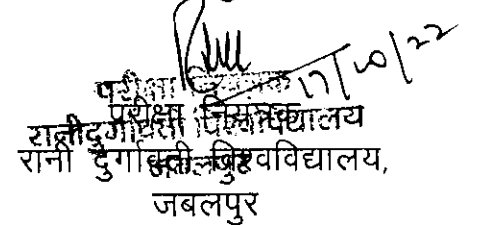 17/10/22
परीक्षा नियंत्रक
रानी दुर्गावती विश्वविद्यालय,
जबलपुर